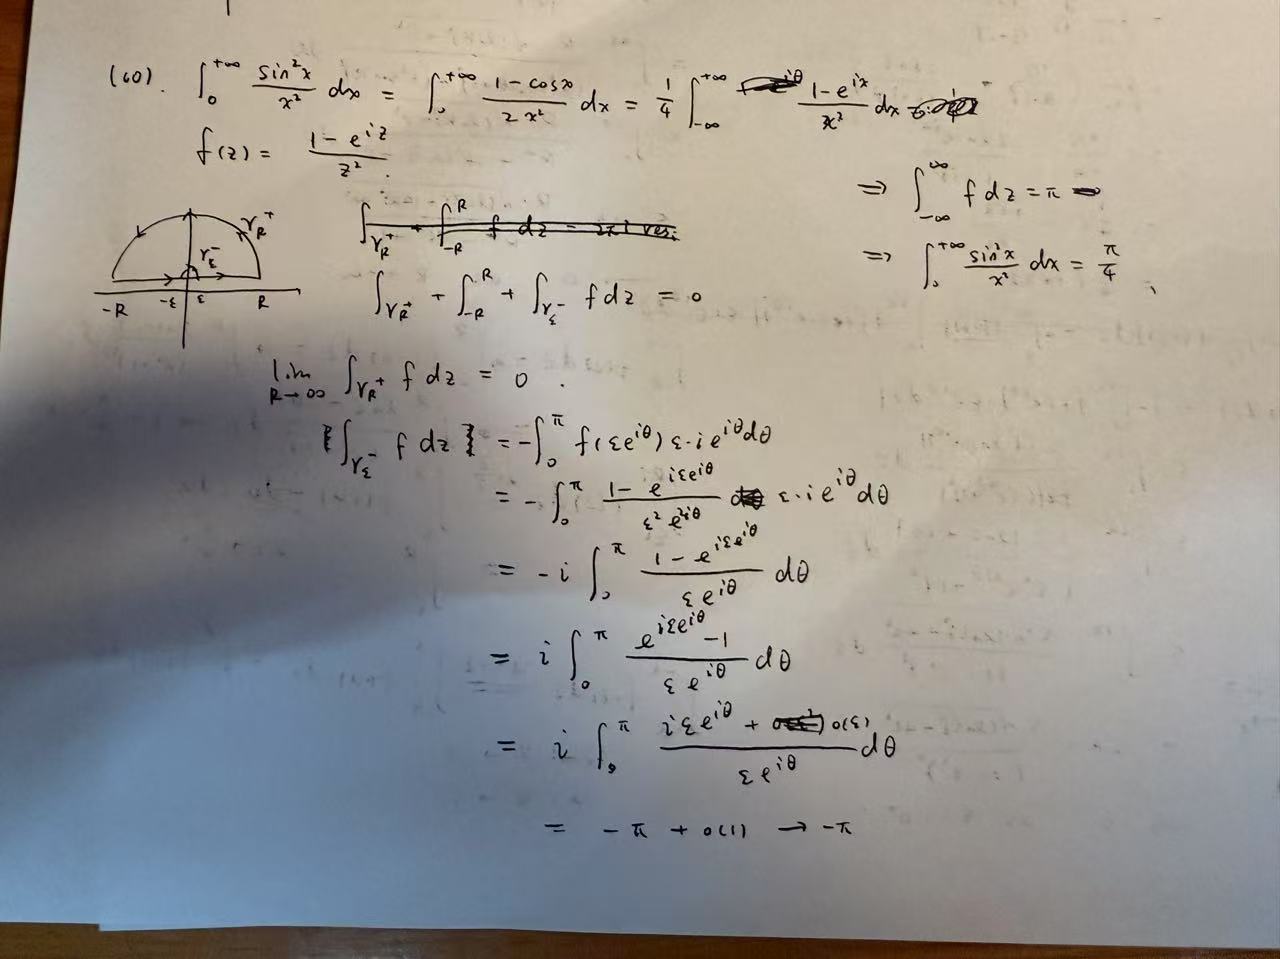 (10). ∫_0^{+∞} \frac{sin^2 x}{x^2} dx = ∫_0^{+∞} \frac{1 - cos x}{2x^2} dx = \frac{1}{4} ∫_{-∞}^{+∞} \frac{1 - e^{ix}}{x^2} dx
f(z) = \frac{1 - e^{iz}}{z^2}.
γ_R^+
γ_ε^-
-R -ε ε R
∫_{γ_R^+} + ∫_{-R}^{R} f dz = 2πi res.
∫_{γ_R^+} + ∫_{-R}^{R} + ∫_{γ_ε^-} f dz = 0
lim_{R→∞} ∫_{γ_R^+} f dz = 0.
∫_{γ_ε^-} f dz = -∫_0^π f(εe^{iθ}) ε·i e^{iθ} dθ
= -∫_0^π \frac{1 - e^{iεe^{iθ}}}{ε^2 e^{2iθ}} ε·i e^{iθ} dθ
= -i ∫_0^π \frac{1 - e^{iεe^{iθ}}}{ε e^{iθ}} dθ
= i ∫_0^π \frac{e^{iεe^{iθ}} - 1}{ε e^{iθ}} dθ
= i ∫_0^π \frac{iεe^{iθ} + o(ε)}{ε e^{iθ}} dθ
= -π + o(1) → -π
⇒ ∫_{-∞}^{∞} f dz = π
⇒ ∫_0^{+∞} \frac{sin^2 x}{x^2} dx = \frac{π}{4}